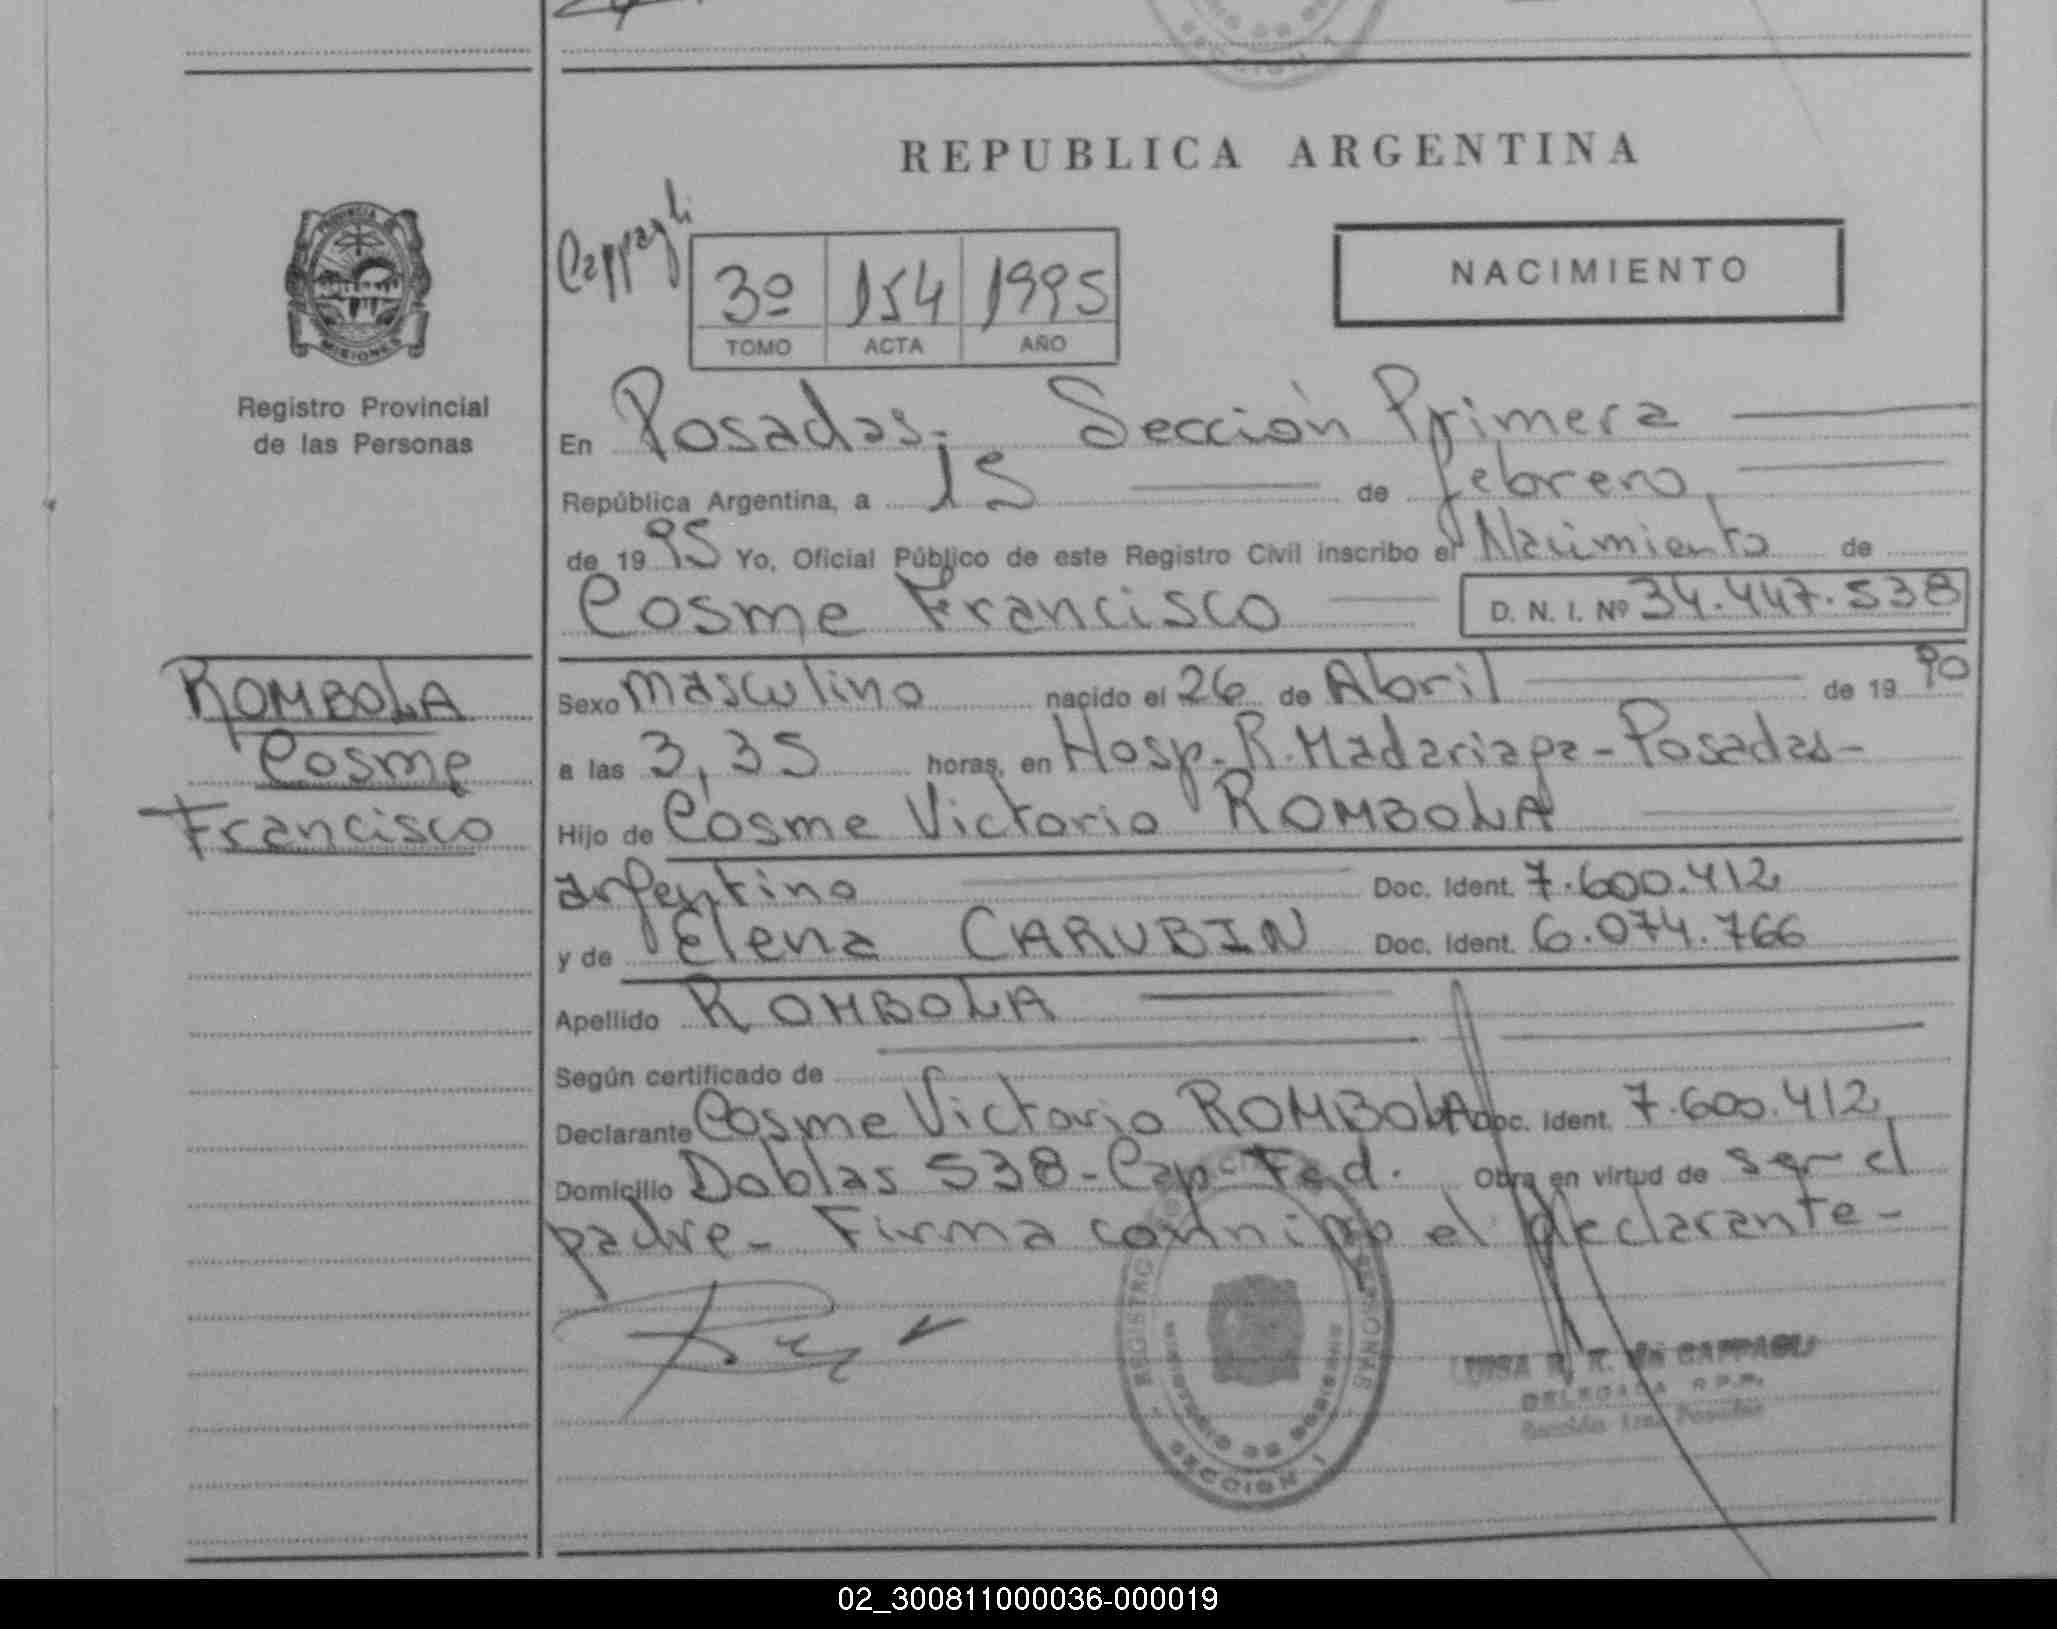 REPUBLICA ARGENTINA
PROVINCIA
MISIONES
Registro Provincial
de las Personas
Cappagli
3º 154 1995
TOMO ACTA AÑO
NACIMIENTO
En Posadas. Sección Primera
República Argentina, a 15 de febrero,
de 1995 Yo, Oficial Público de este Registro Civil inscribo el Nacimiento de
Cosme Francisco D. N. I. Nº 34.447.538
ROMBOLA
Cosme
Francisco
Sexo masculino nacido el 26 de Abril de 19 90
a las 3,35 horas, en Hosp. R. Madariaga - Posadas -
Hijo de Cosme Victorio ROMBOLA
argentino Doc. Ident. 7.600.412
y de Elena CARUBIN Doc. Ident. 6.074.766
Apellido ROMBOLA
Según certificado de
Declarante Cosme Victorio ROMBOLA Doc. Ident. 7.600.412
Domicilio Doblas 538 - Cap. Fed. Obra en virtud de ser el
padre - Firma conmigo el declarante -
REGISTRO PERSONAS
MINISTERIO DE GOBIERNO
SECCION 1
LUISA R. K. de CAPPAGLI
DELEGADA R.P.P.
Sección 1ra. Posadas
02_300811000036-000019